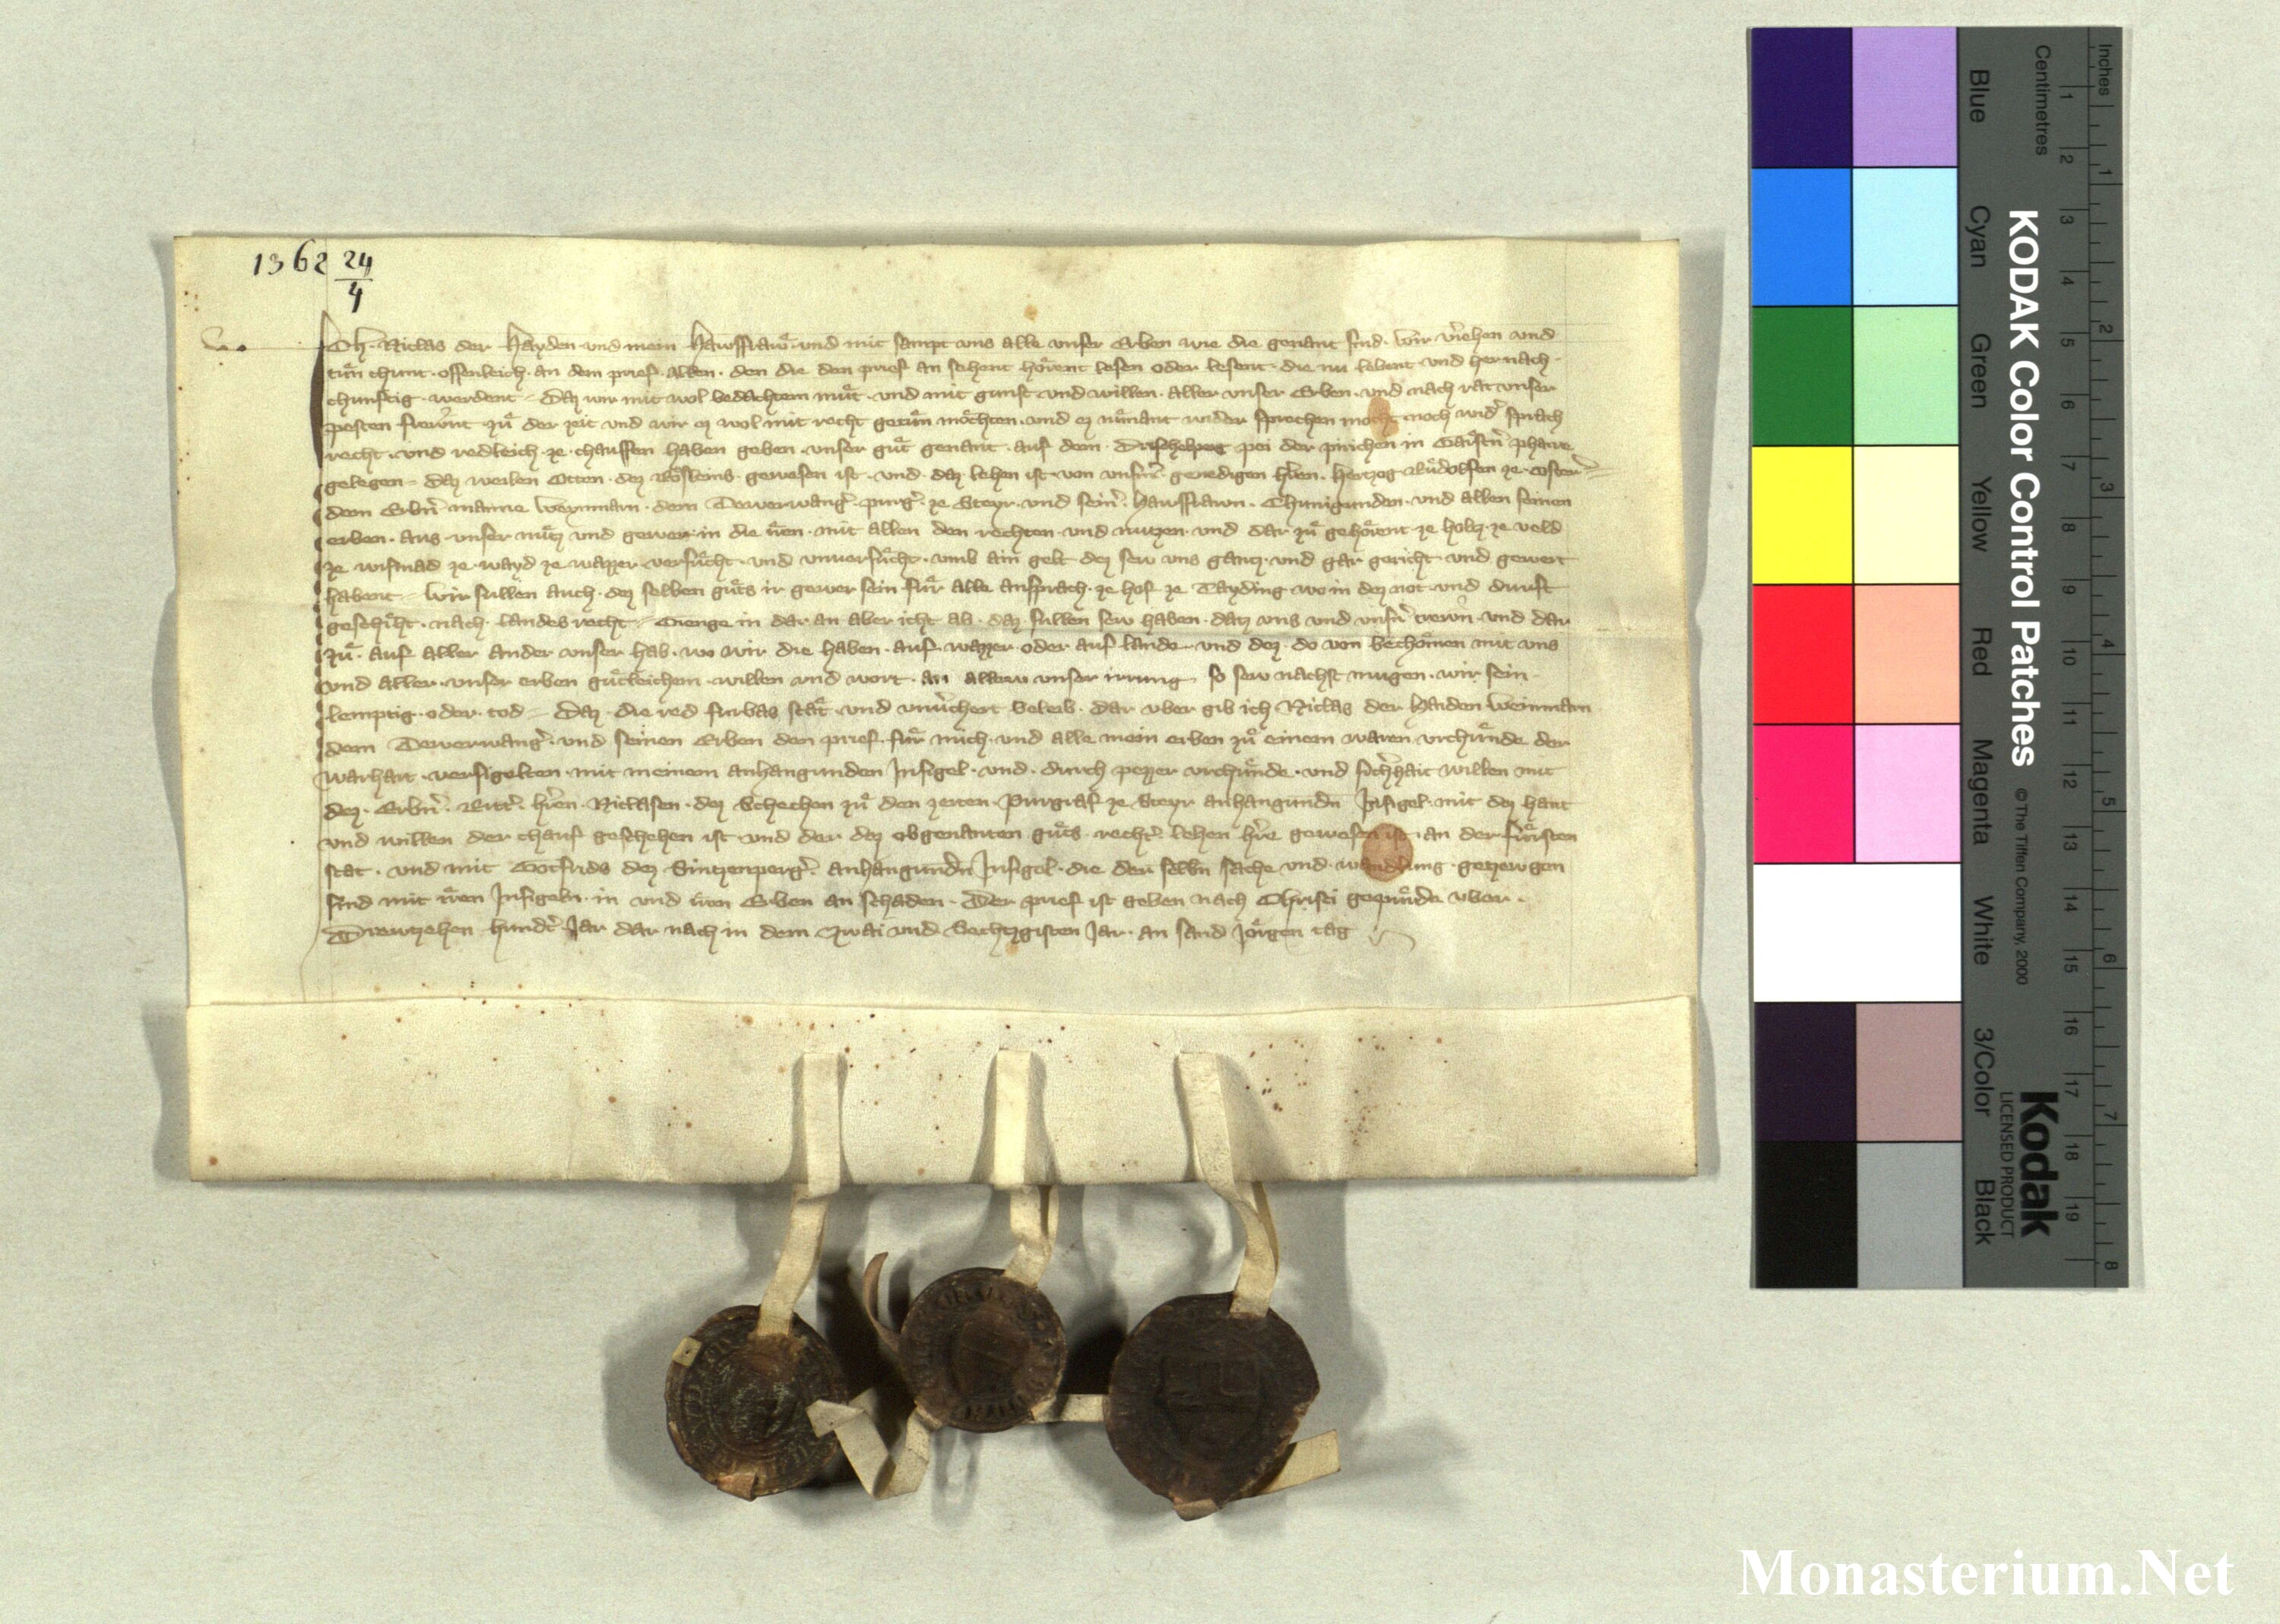 1362 24
4
Ich Niclas der Hayden und mein Hawsfraw und mit sampt uns alle unser Erben wie die genant sind wir v̉iehen und
tun chunt offenleich an dem prief allen den die den prief an sehent hörent lesen oder lesent die nu lebent und her nach
chunftig werdent Daz wir mit wol bedachtem mut und mit gunst und willen aller unser Erben und nach rat unser
pesten frewnt zů der zeit und wir ez wol mit recht getun möchten und ez nymant wider sprechen mocht noch wid̉ sprach
recht und redleich ze chauffen haben geben unser gůt genant auf dem pei der pirichen in pharre
gelegen Daz weilen Otten dez gewesen ist und daz lehen ist von unserm genedigen h̉ren Hertzog Růdolfen ze Oster̉
dem Erbn̉ manne Weynmarn dem Tewerwang̉ purg̉ ze Steyr und sein̉ Hawsfrawn Chunigunden und allen seinen
erben aus unser nutz und gewer in die iren mit allen den rechten und nutzen und dar zů gehörent ze holtz ze veld
ze wismad ze wayd ze wazzer versůcht und unversůcht umb ain gelt dez sew uns gantz und gar gericht und gewert
habent Wir sullen auch dez selben gůts ir gewer sein für alle ansprach ze hof ze Tayding wo in dez not und durft
geschiht nach landes recht Gienge in dar an aber icht ab daz sullen sew haben datz uns und unsern trewn und dar
zů auf aller ander unser hab wo wir die haben auf wazzer oder auf lande und dez do von bechömen mit uns
und aller unser erben gůtleichem willen und wort an allew unser irrung so sew nachst mugen wir sein
lemptig oder tod Daz die red furbas stät und unv̉chert beleib dar uber gib ich Niclas der Haiden Weinmarn
dem Tewerwang̉ und seinen Erben den prief für mich und alle mein erben zů einem waren urchunde der
warhait versigelten mit meinem anhangunden Insigel und durch pezzer urchunde und sich̉hait willen mit
dez Erbn̉ Ritt̉ h̉ren Niclasen dez Schechen zů den zeiten Purgraf ze Steyr anhangundn̄ Insigel mit dez hant
und willen der chauf geschehen ist und der dez obgenanten gůts recht̉ lehen h̉re gewesen ist an der fürsten
stat und mit Gotfrids dez Sintzenperg̉ anhangundn̄ Insigel die der selbn̄ sache und wandlung getzewgen
sind mit iren Insigeln in und iren Erben an schaden Der prief ist geben nach Christi gepurde uber
Drewtzehen hund̉t Jar dar nach in dem Zwai und Sechtzgisten Jar an sand Jörgen tag
Inches
Centimetres
1 2 3 4 5 6 7 8 9 10 11 12 13 14 15 16 17 18 19
1 2 3 4 5 6 7 8
KODAK Color Control Patches
© The Tiffen Company, 2000
Kodak
LICENSED PRODUCT
Blue
Cyan
Green
Yellow
Red
Magenta
White
3/Color
Black
Monasterium.Net